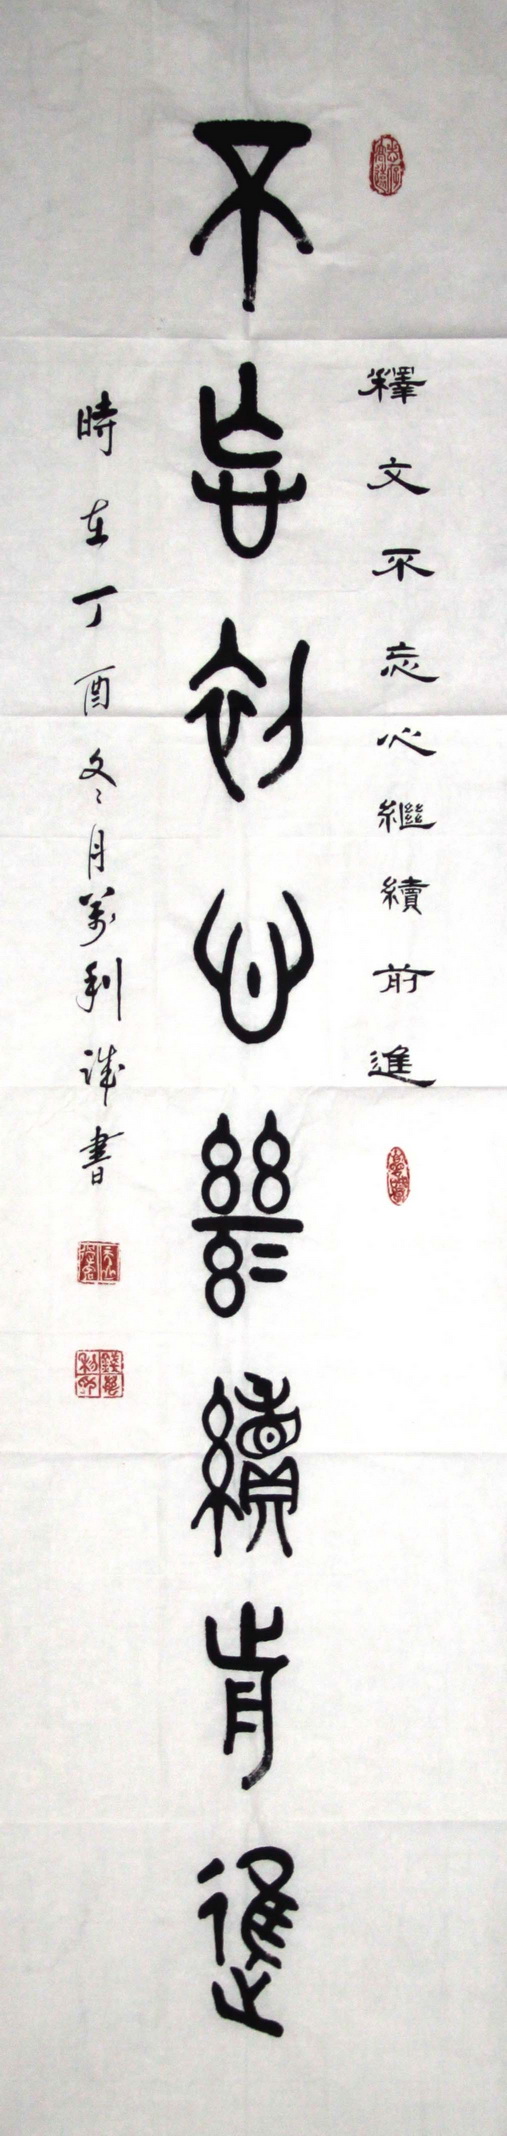 釋文不忘心繼續前進
不忘初心繼續前進
時在丁酉冬月萬利誠書